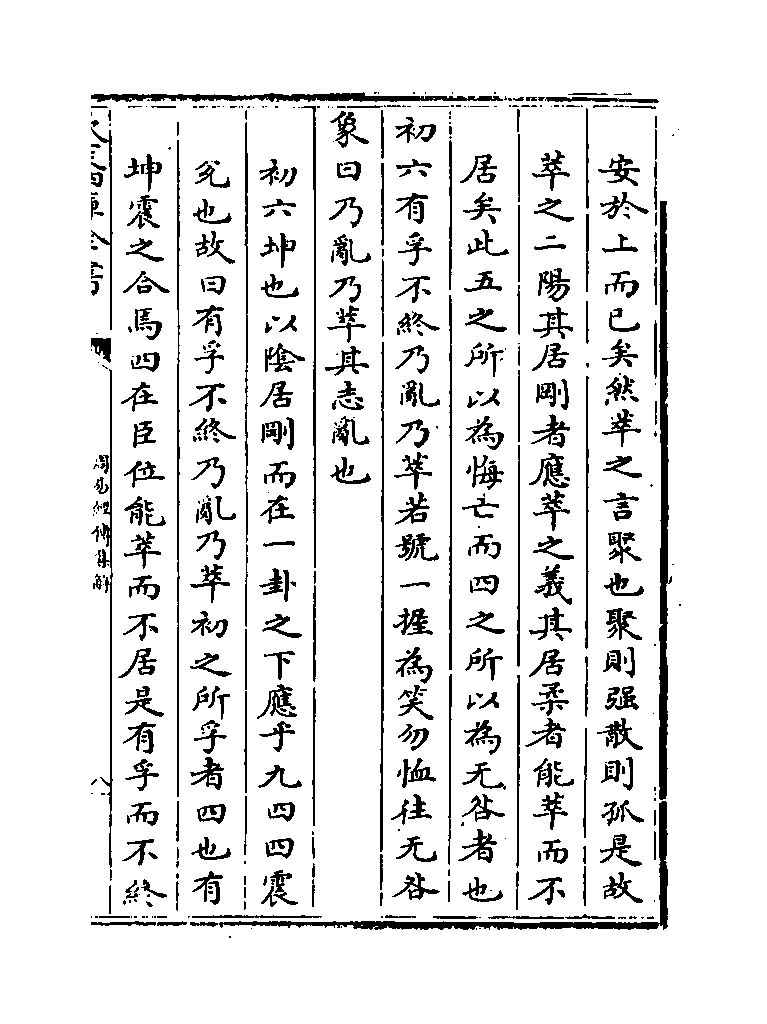 安於上而已矣然萃之言聚也聚則强散則孤是故
萃之二陽其居剛者應萃之義其居柔者能萃而不
居矣此五之所以為悔亡而四之所以為无咎者也
初六有孚不終乃亂乃萃若號一握為笑勿恤往无咎
象曰乃亂乃萃其志亂也
初六坤也以陰居剛而在一卦之下應乎九四四震
兊也故曰有孚不終乃亂乃萃初之所孚者四也有
坤震之合焉四在臣位能萃而不居是有孚而不終
欽定四庫全書
周易經傳集解
八